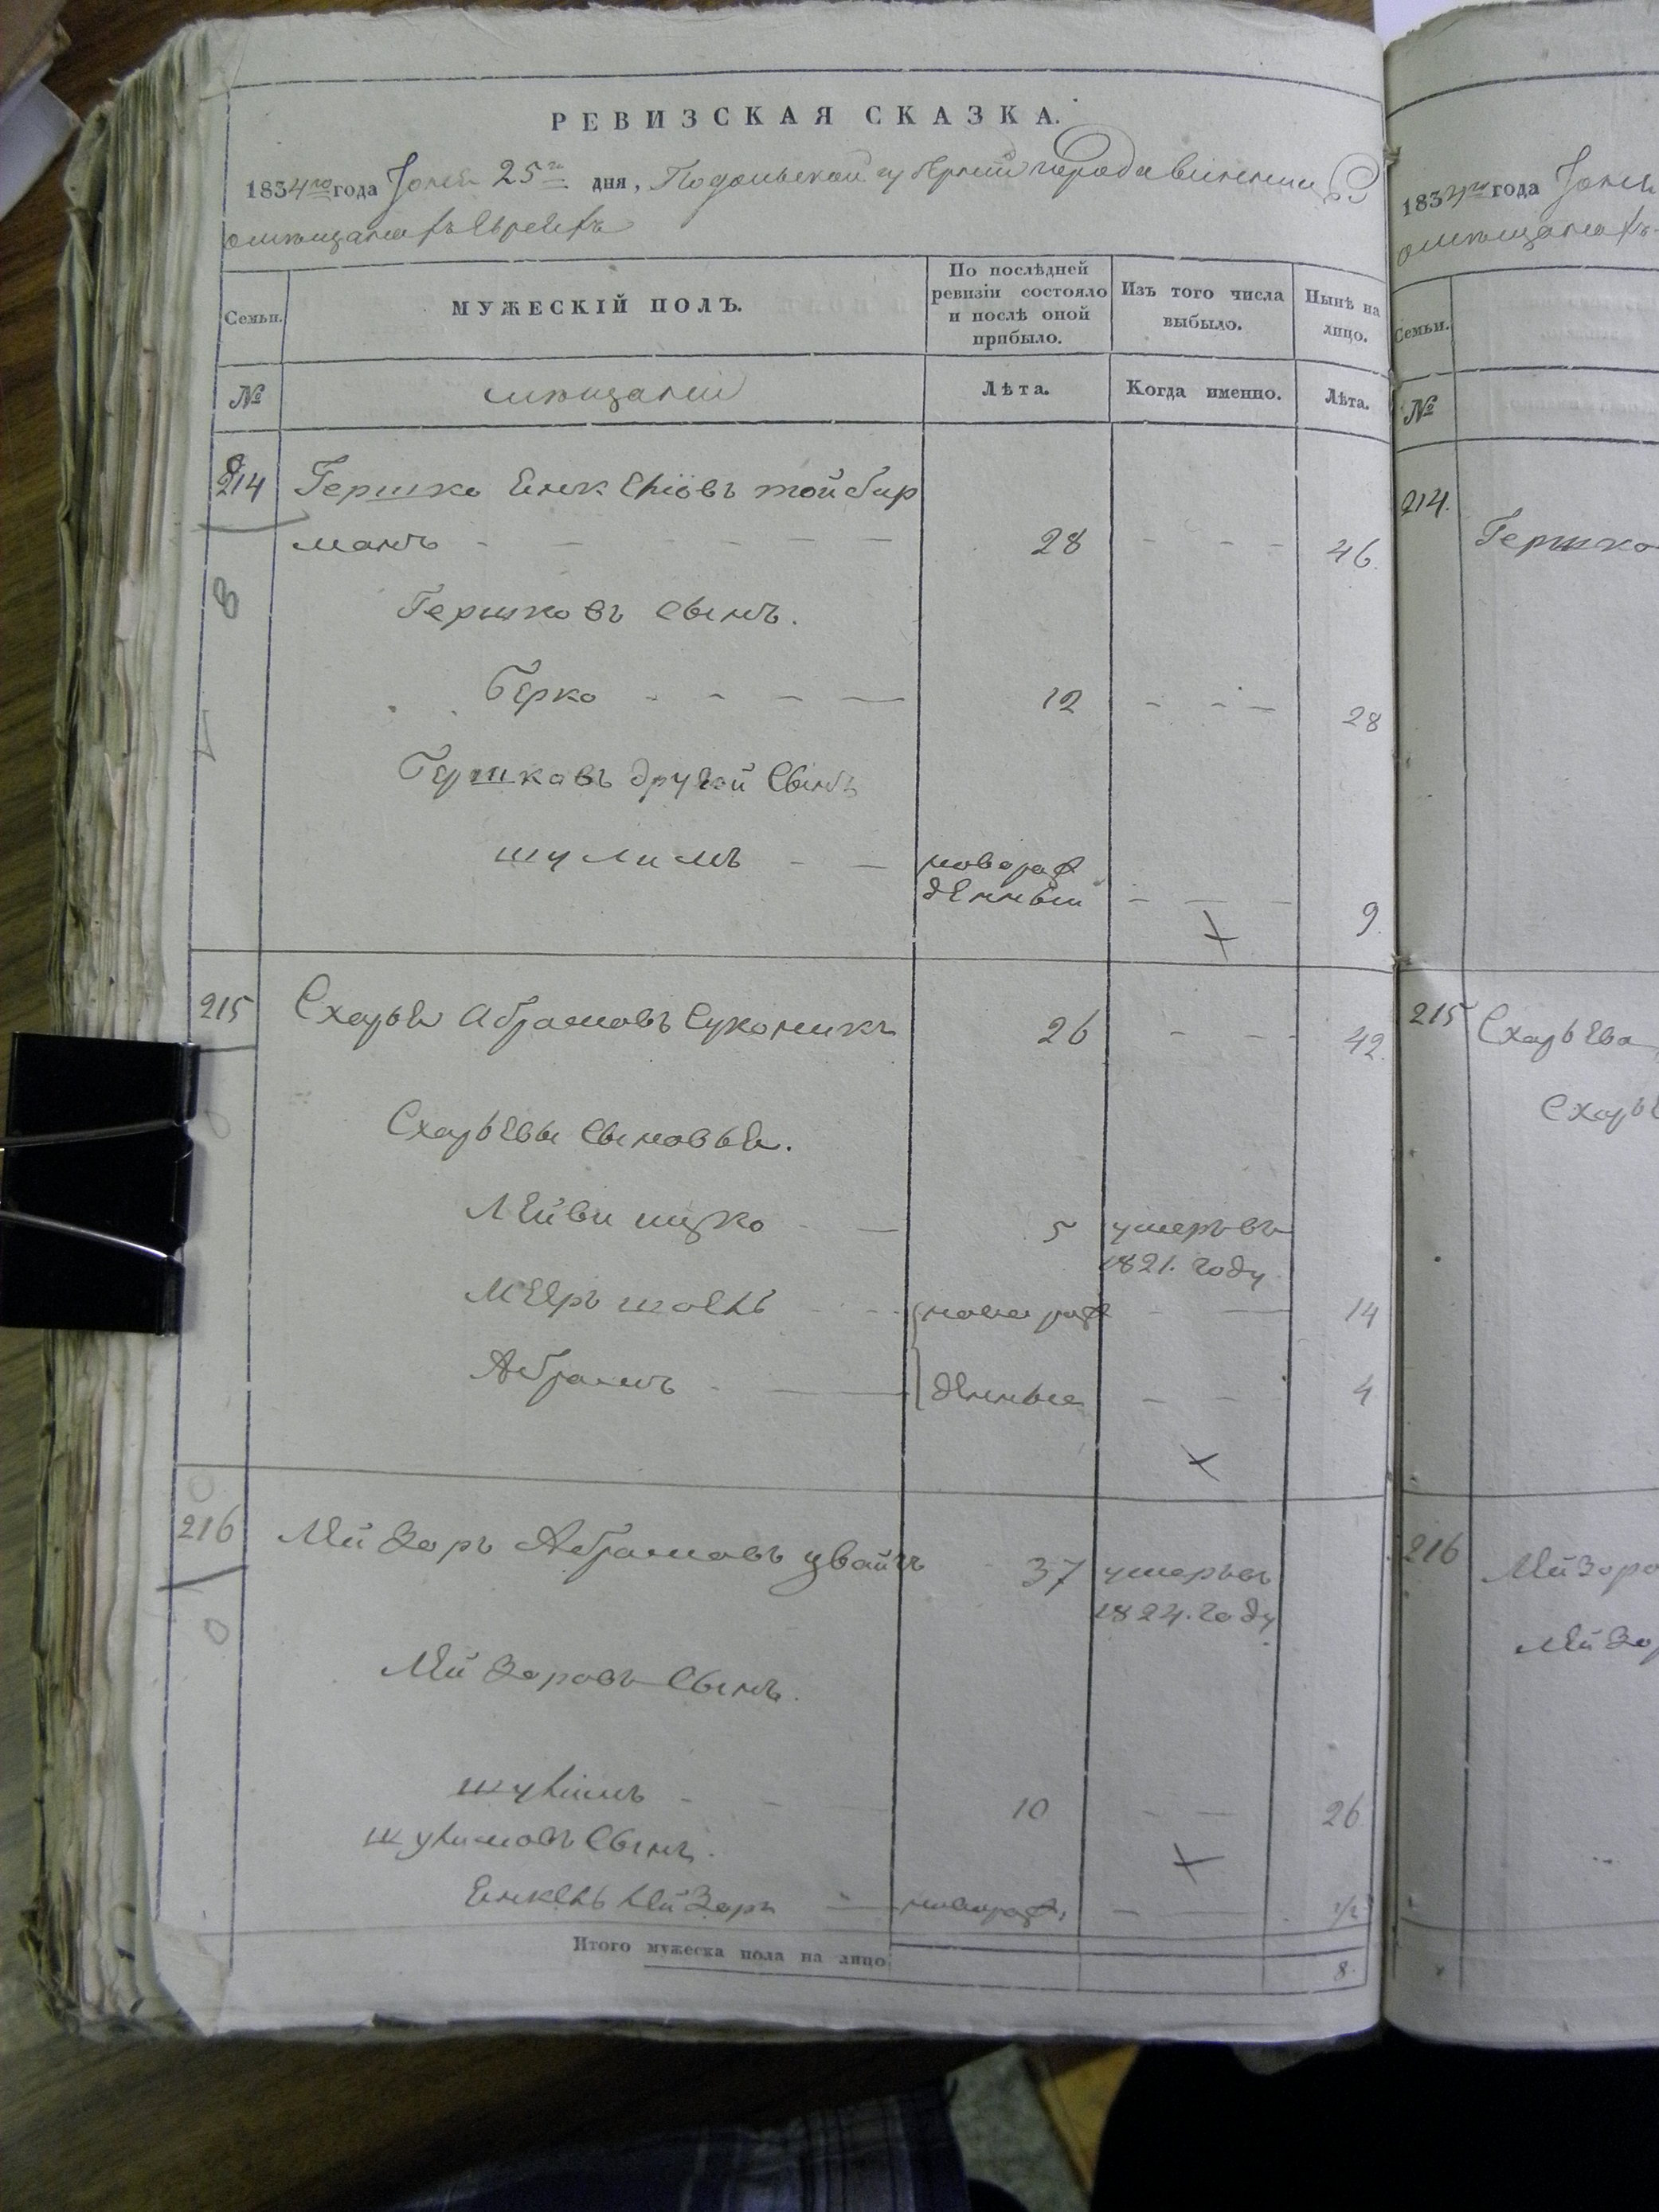 РЕВИЗСКАЯ СКАЗКА.
1834го года Іюня 25го дня, Подольской губерніи города винницы
о мѣщанахъ Евреяхъ
Семьи. МУЖЕСКІЙ ПОЛЪ. По послѣдней ревизіи состояло и послѣ оной прибыло. Изъ того числа выбыло. Нынѣ на лицо.
№ мѣщани Лѣта. Когда именно. Лѣта.
214 Гершко Енкеліовъ тойбир
манъ - - - - - - 28 - - - 46.
8
Гершковъ Сынъ.
Берко - - - - 12 - - - 28
Гершковъ другой Сынъ
шулимъ - - новораж
денный - - - 9.
215 Схарья Абрамовъ Суконикъ 26 - - 42.
Схарьевы Сыновья.
Лейви ицко - - 5 умеръ въ
1821. году
Мееръ шоель - - новораж - - 14
Абрамъ - - денные - - 4
216 Лейзоръ Абрамовъ цвайгъ 37 умеръ въ
1824. году
Лейзоровъ Сынъ.
шулимъ - - - 10 - - 26
шулимовъ Сынъ.
Енкель Лейзоръ - - новораж. - - 1/2
Итого мужеска пола на лицо 8.
1834го года Іюня
о мѣщанахъ
Семьи.
№
214. Гершко
215 Схарьева
216 Лейзоро